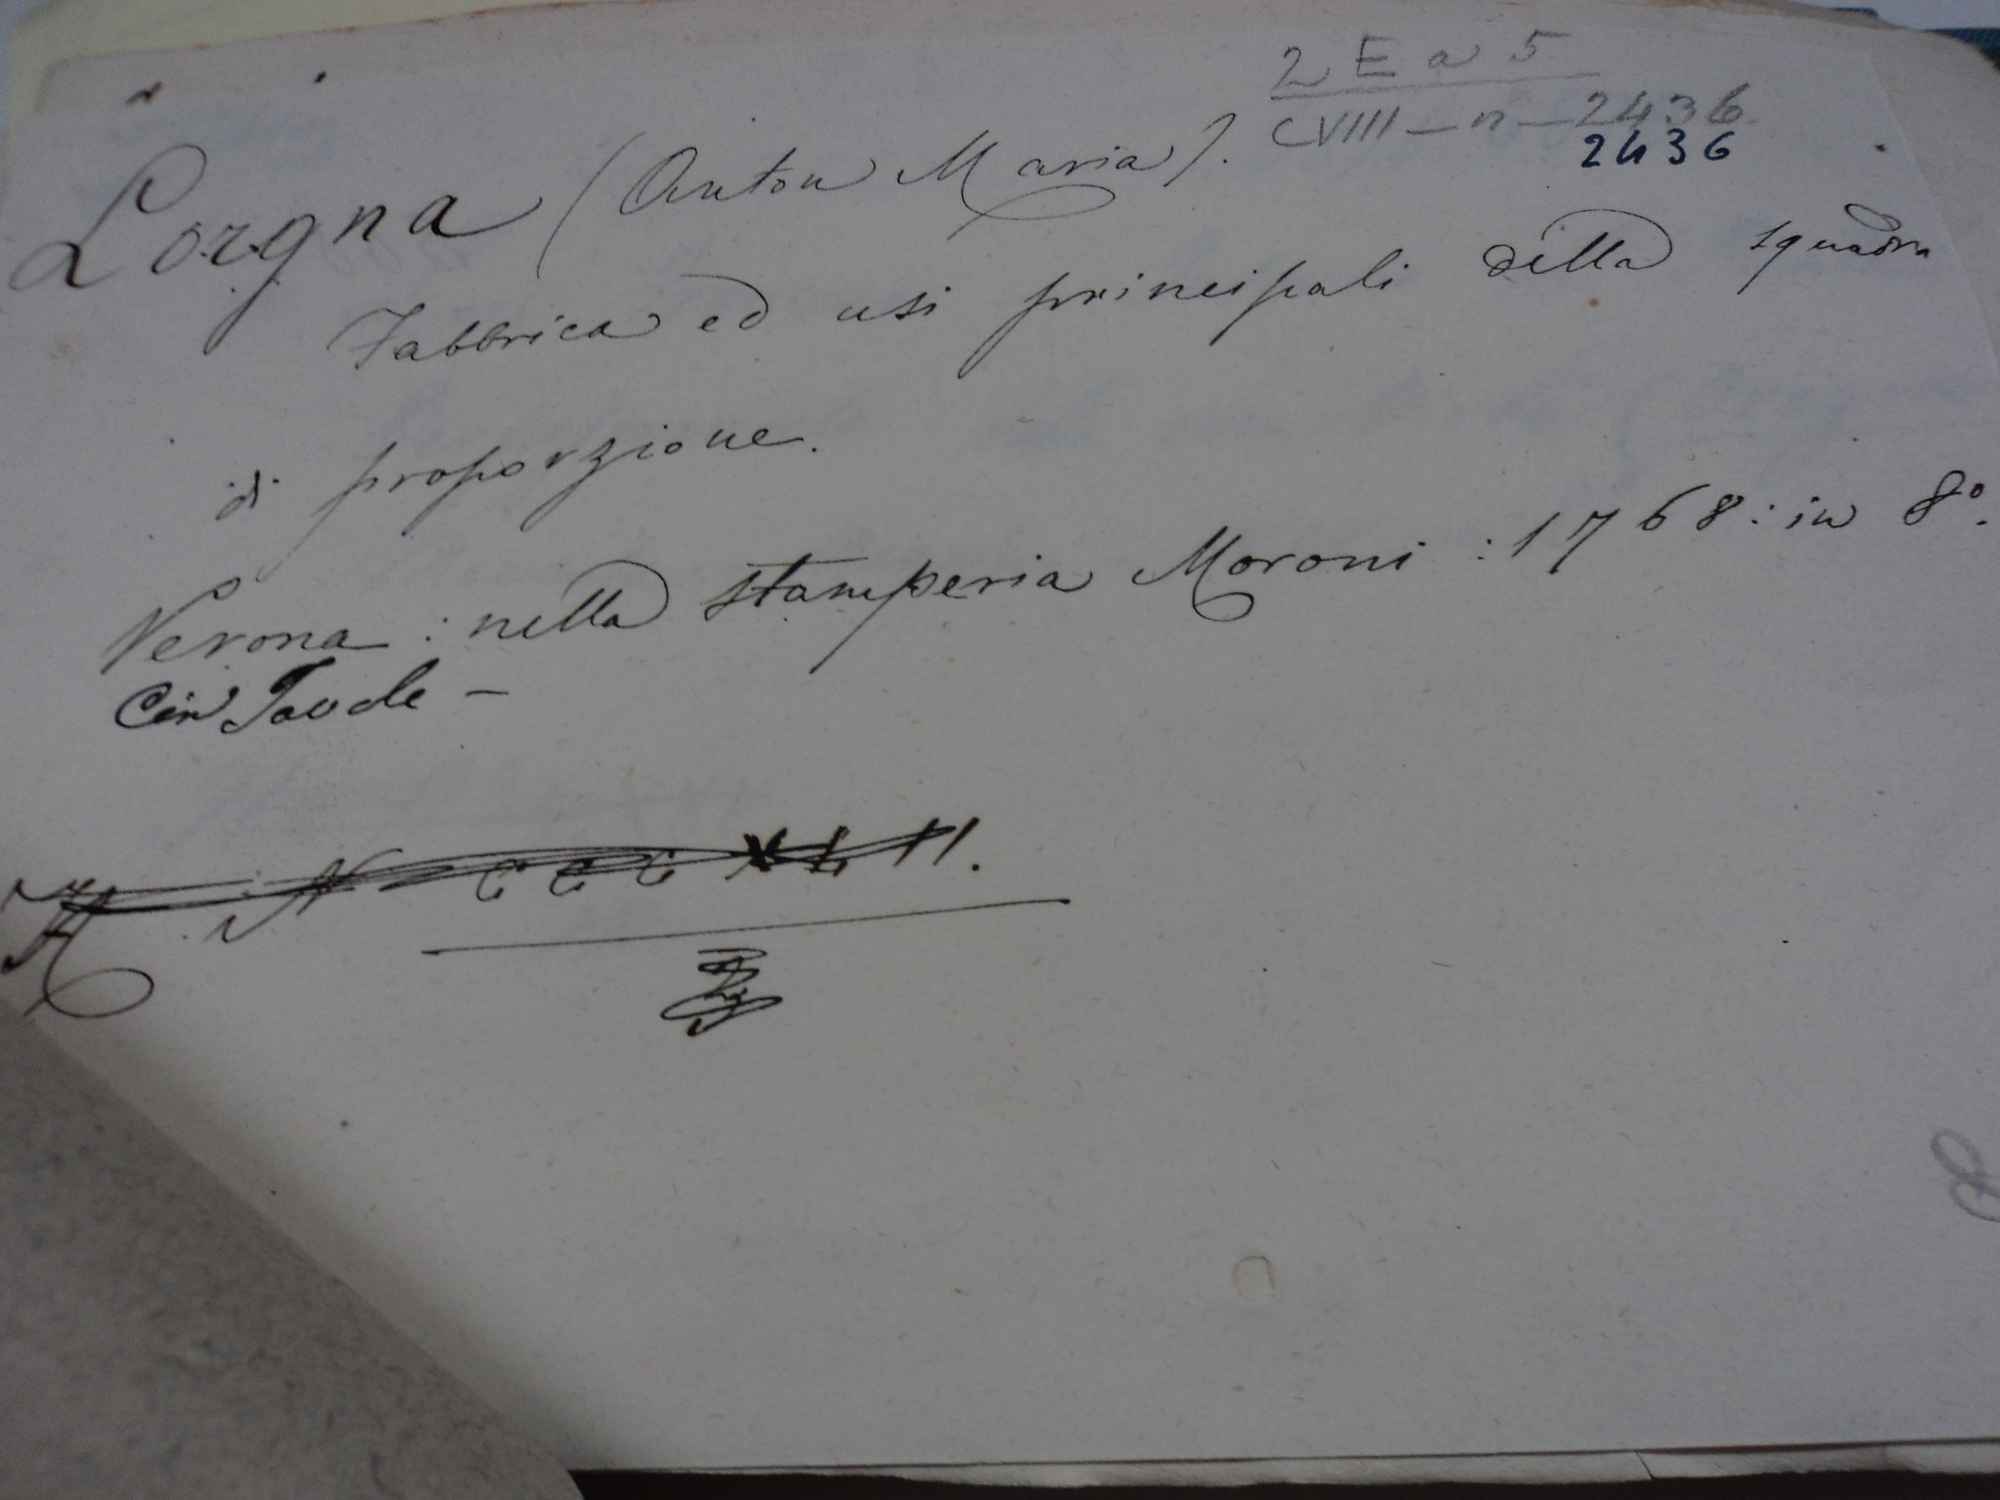 2 E a 5
CVIII - n - 2436
2436
Lorgna (Anton Maria).
Fabbrica ed usi principali della squadra
di proporzione.
Verona : nella stamperia Moroni : 1768 : in 8°.
Con Tavole -
N CCCXLII.